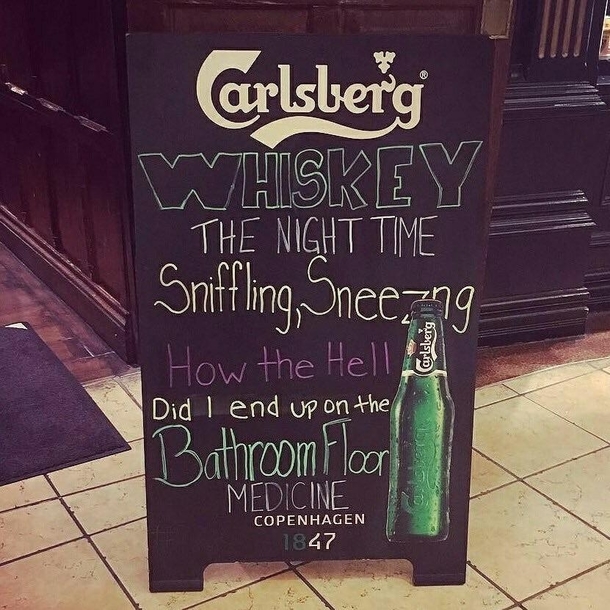 Carlsberg®
WHISKEY
THE NIGHT TIME
Sniffling, Sneezng
How the Hell
Did I end up on the
Bathroom Floor
MEDICINE
COPENHAGEN
1847
Carlsberg
Carlsberg